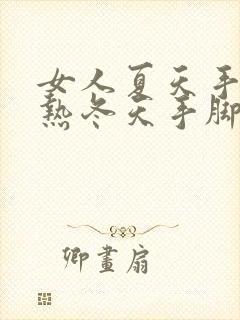 女人夏天手
热冬天手脚
卿畫扇